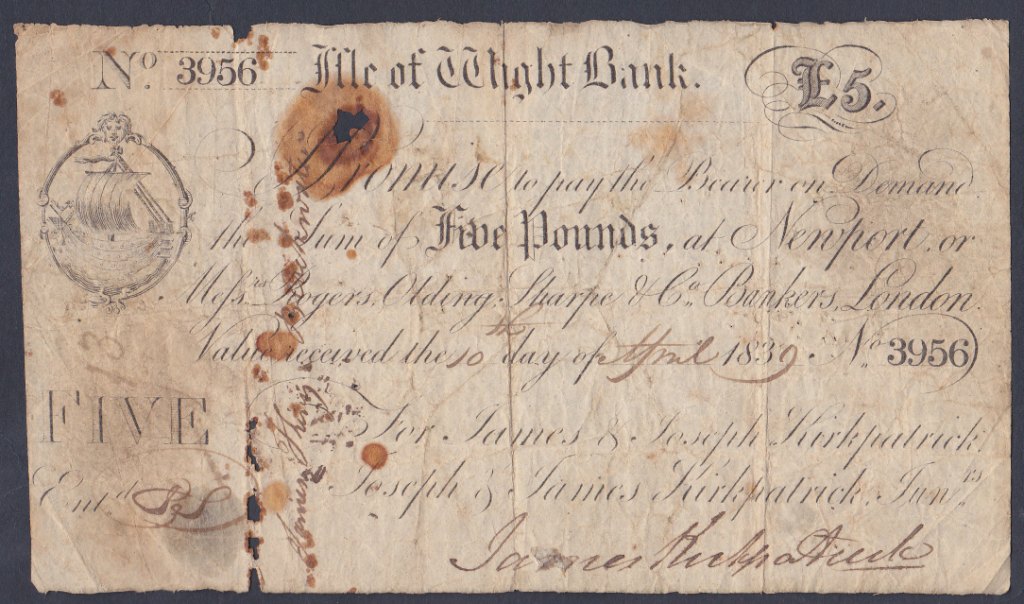 No. 3956 Isle of Wight Bank. £5.
I Promise to pay the Bearer on Demand
the Sum of Five Pounds, at Newport, or
Messrs Rogers, Olding, Sharpe & Co. Bankers, London.
Value received the 10th day of April 1839 No. 3956
FIVE
For James & Joseph Kirkpatrick,
Entd Joseph & James Kirkpatrick, Junrs
James Kirkpatrick